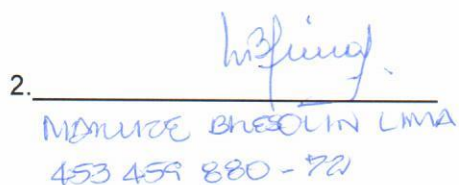 2.
MARLIZE BRESOLIN LIMA
453 459 880-72